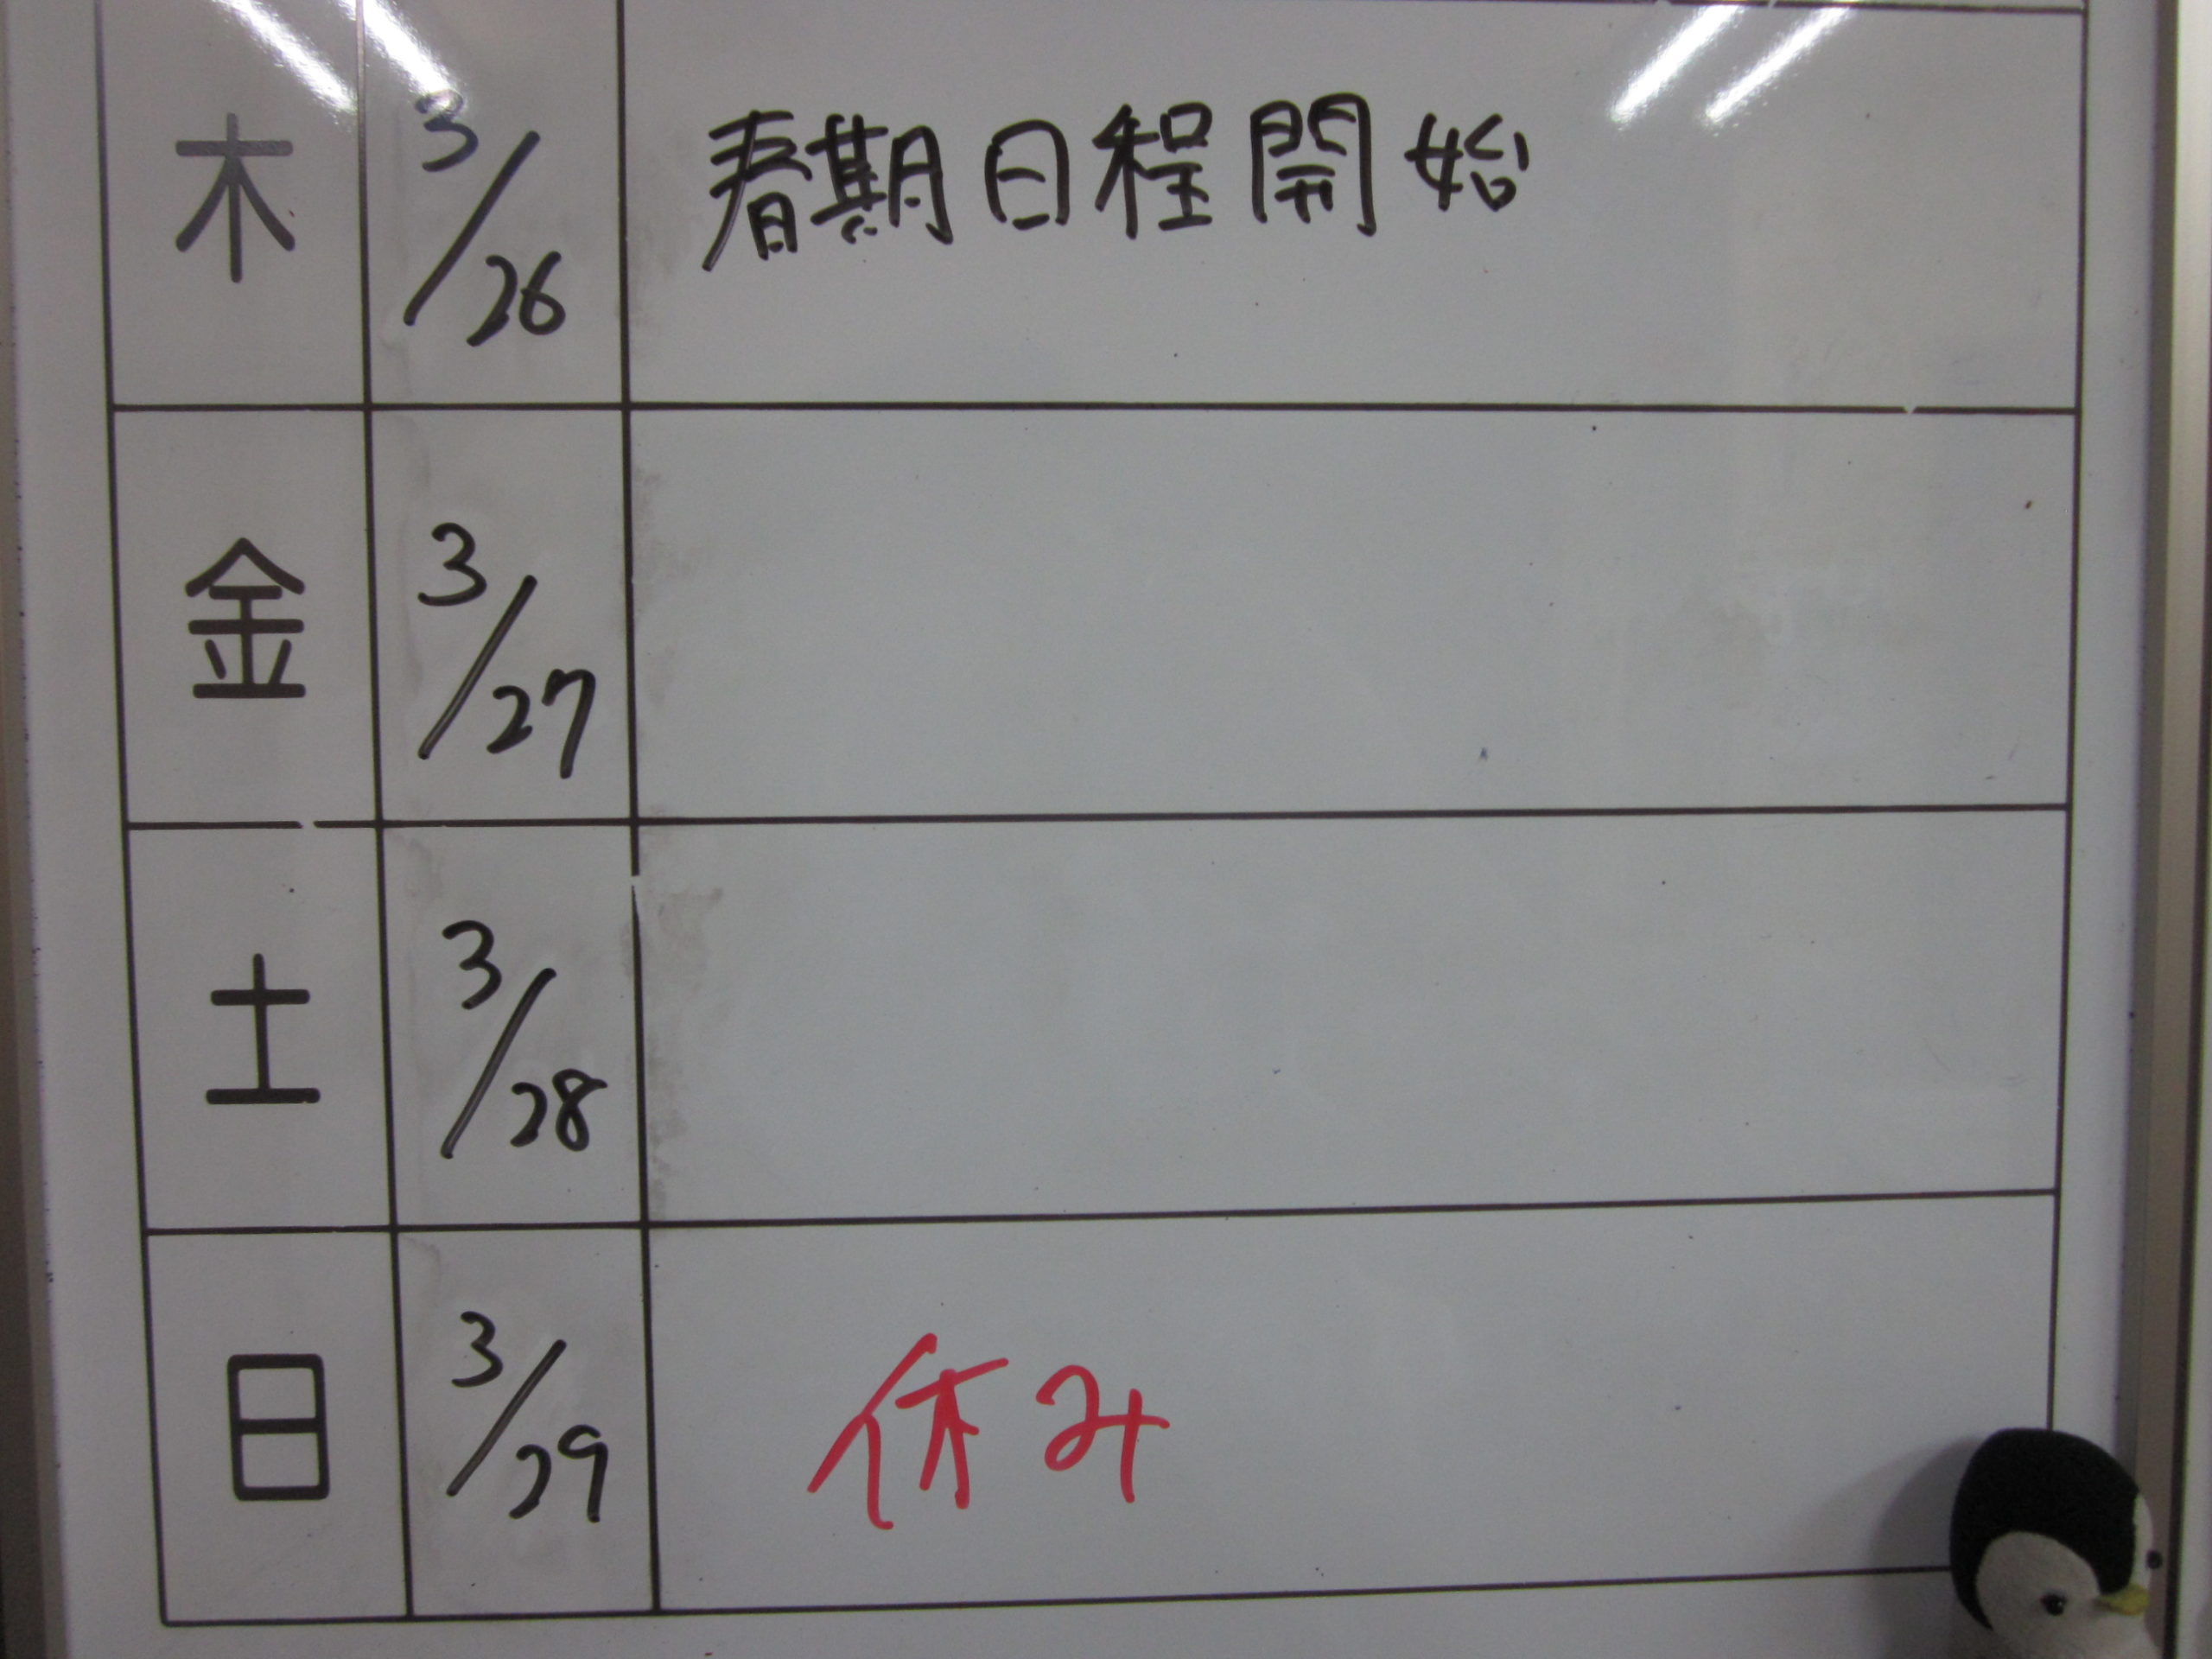 木 3/26 春期日程開始
金 3/27
土 3/28
日 3/29 休み